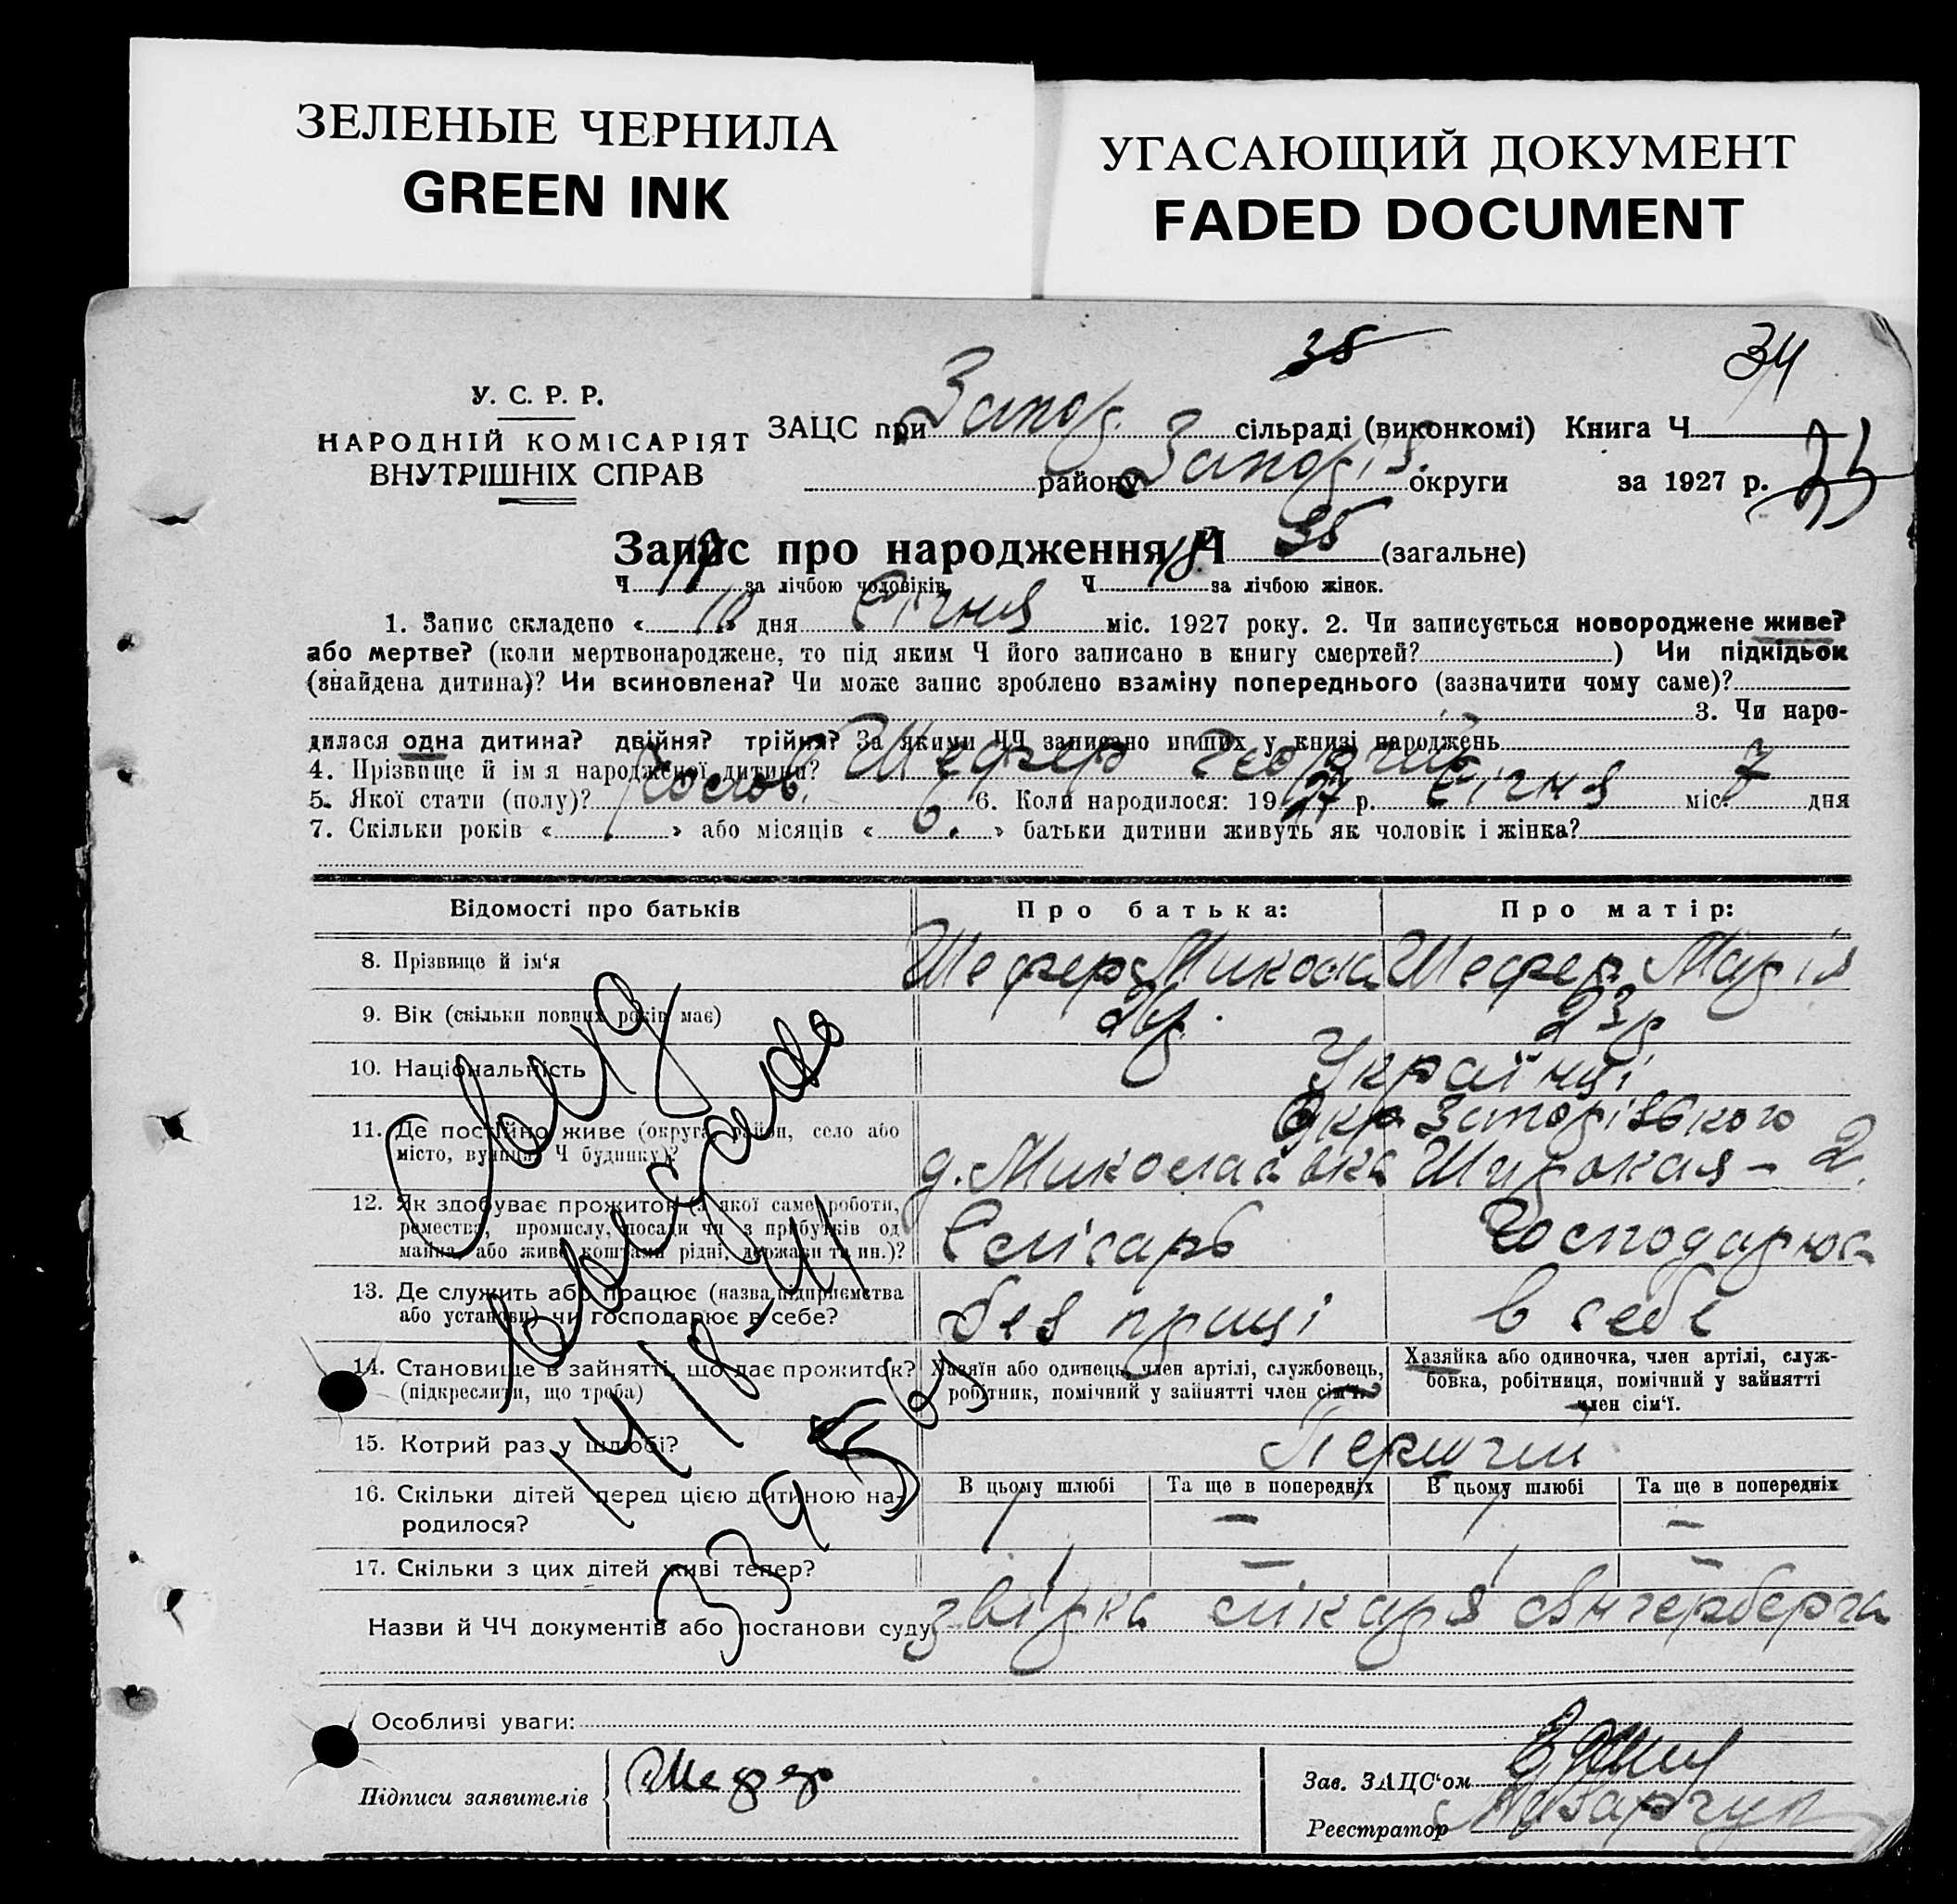 ЗЕЛЕНЫЕ ЧЕРНИЛА
GREEN INK
УГАСАЮЩИЙ ДОКУМЕНТ
FADED DOCUMENT
35
34
У. С. Р. Р.
НАРОДНІЙ КОМІСАРІЯТ
ВНУТРІШНІХ СПРАВ
ЗАЦС при Запор. сільраді (виконкомі) Книга Ч
району Запоріз. округи за 1927 р. 33
Запис про народження Ч 35 (загальне)
Ч 17 за лічбою чоловіків Ч 18 за лічбою жінок.
1. Запис складено «10» дня Січня міс. 1927 року. 2. Чи записується новороджене живе?
або мертве? (коли мертвонароджене, то під яким Ч його записано в книгу смертей?) Чи підкідьок
(знайдена дитина)? Чи всиновлена? Чи може запис зроблено взаміну попереднього (зазначити чому саме)?
3. Чи наро-
дилася одна дитина? двійня? трійня? За якими ЧЧ записано инших у книзі народжень
4. Прізвище й ім я народженої дитини? Шефер Георгий
5. Якої стати (полу)? Холов. 6. Коли народилося: 1927 р. Січня міс. 7 дня
7. Скільки років « » або місяців « 6. » батьки дитини живуть як чоловік і жінка?
Відомості про батьків Про батька: Про матір:
8. Прізвище й ім'я Шефер Микола Шефер Марія
9. Вік (скільки повних років має) 23р
10. Національність Українці
11. Де постійно живе (округа, район, село або Окр Запорізького
місто, вулиця, Ч будинку)? д. Миколаївка Широкая - 2.
12. Як здобуває прожиток (з якої саме роботи,
ремества, промислу, посади чи з прибутків од
майна, або живе коштами рідні, держави та ин.)? Слісарь Господарює
13. Де служить або працює (назва підприємства
або установи) чи господарює в себе? без праці в себе
14. Становище в зайнятті, що дає прожиток?
(підкреслити, що треба)
Хазяїн або одинець, член артілі, службовець,
робітник, помічний у зайнятті член сім'ї.
Хазяйка або одиночка, член артілі, служ-
бовка, робітниця, помічний у зайнятті
член сім'ї.
15. Котрий раз у шлюбі? Перший
16. Скільки дітей перед цією дитиною на-
родилося?
В цьому шлюбі Та ще в попередніх В цьому шлюбі Та ще в попередніх
1 — 1 —
17. Скільки з цих дітей живі тепер? 1 — 1 —
Назви й ЧЧ документів або постанови суду звірка лікаря
Особливі уваги:
Підписи заявителів Шефер
Зав. ЗАЦС'ом
Реєстратор